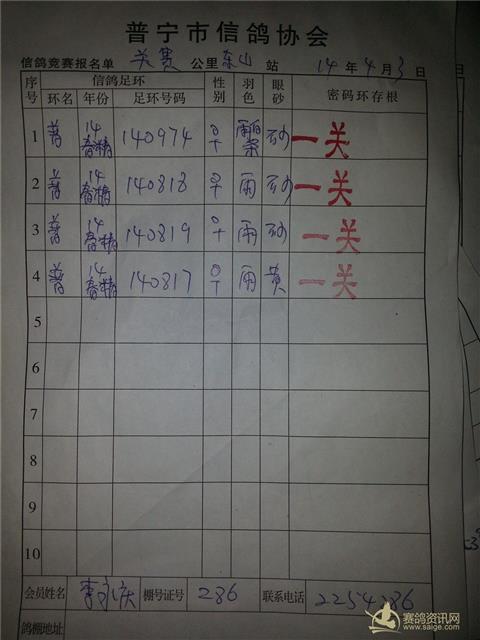 普宁市信鸽协会
信鸽竞赛报名单 关赛 公里 东山 站 14 年 4 月 3 日 日
序号 信鸽足环 性别 羽色 眼砂 密码环存根
环名 年份 足环号码
1 普 14春棒 140974 雨白条 砂 一关
2 普 14春棒 140818 雨 砂 一关
3 普 14春棒 140819 雨 砂 一关
4 普 14春棒 140817 雨 黄 一关
5
6
7
8
9
10
会员姓名 李永庆 棚号证号 286 联系电话 2254286
鸽棚地址
赛鸽资讯网
www.saige.com